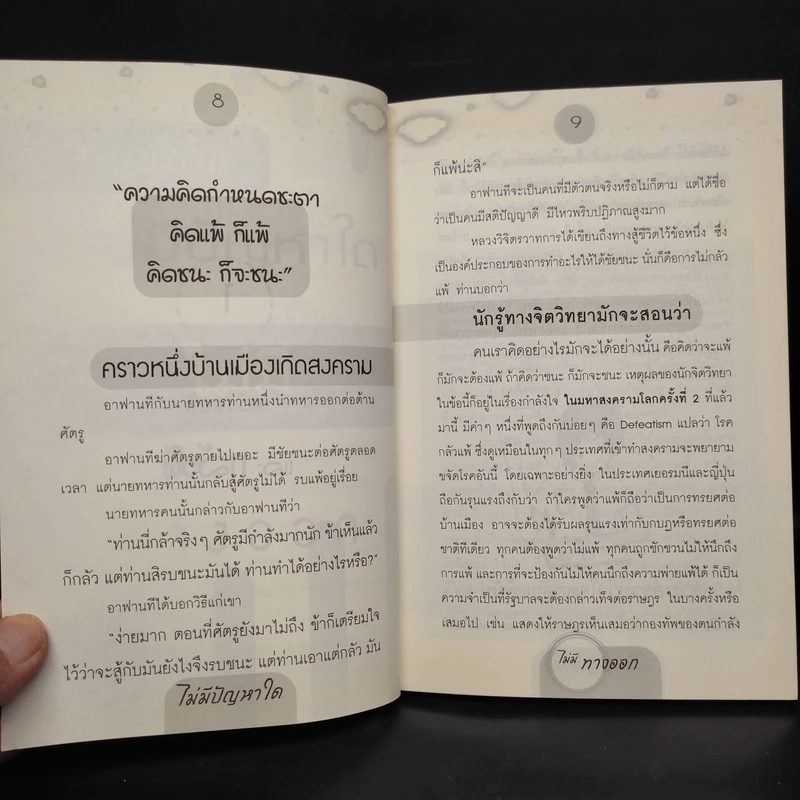 8
“ความคิดกำหนดชะตา
คิดแพ้ ก็แพ้
คิดชนะ ก็จะชนะ”
คราวหนึ่งบ้านเมืองเกิดสงคราม
อาฟานทีกับนายทหารท่านหนึ่งนำทหารออกต่อต้าน
ศัตรู
อาฟานทีฆ่าศัตรูตายไปเยอะ มีชัยชนะต่อศัตรูตลอด
เวลา แต่นายทหารท่านนั้นกลับสู้ศัตรูไม่ได้ รบแพ้อยู่เรื่อย
นายทหารคนนั้นกล่าวกับอาฟานทีว่า
“ท่านนี่กล้าจริงๆ ศัตรูมีกำลังมากนัก ข้าเห็นแล้ว
ก็กลัว แต่ท่านสิรบชนะมันได้ ท่านทำได้อย่างไรหรือ?”
อาฟานทีได้บอกวิธีแก่เขา
“ง่ายมาก ตอนที่ศัตรูยังมาไม่ถึง ข้าก็เตรียมใจ
ไว้ว่าจะสู้กับมันยังไงจึงรบชนะ แต่ท่านเอาแต่กลัว มัน
ไม่มีปัญหาใด
9
ก็แพ้น่ะสิ”
อาฟานทีจะเป็นคนที่มีตัวตนจริงหรือไม่ก็ตาม แต่ได้ชื่อ
ว่าเป็นคนมีสติปัญญาดี มีไหวพริบปฏิภาณสูงมาก
หลวงวิจิตรวาทการได้เขียนถึงทางสู้ชีวิตไว้ข้อหนึ่ง ซึ่ง
เป็นองค์ประกอบของการทำอะไรให้ได้ชัยชนะ นั่นก็คือการไม่กลัว
แพ้ ท่านบอกว่า
นักรู้ทางจิตวิทยามักจะสอนว่า
คนเราคิดอย่างไรมักจะได้อย่างนั้น คือคิดว่าจะแพ้
ก็มักจะต้องแพ้ ถ้าคิดว่าชนะ ก็มักจะชนะ เหตุผลของนักจิตวิทยา
ในข้อนี้ก็อยู่ในเรื่องกำลังใจ ในมหาสงครามโลกครั้งที่ 2 ที่แล้ว
มานี้ มีคำๆ หนึ่งที่พูดถึงกันบ่อยๆ คือ Defeatism แปลว่า โรค
กลัวแพ้ ซึ่งดูเหมือนในทุกๆ ประเทศที่เข้าทำสงครามจะพยายาม
ขจัดโรคอันนี้ โดยเฉพาะอย่างยิ่ง ในประเทศเยอรมนีและญี่ปุ่น
ถือกันรุนแรงถึงกับว่า ถ้าใครพูดว่าแพ้ก็ถือว่าเป็นการทรยศต่อ
บ้านเมือง อาจจะต้องได้รับผลรุนแรงเท่ากับกบฏหรือทรยศต่อ
ชาติทีเดียว ทุกคนต้องพูดว่าไม่แพ้ ทุกคนถูกชักชวนไม่ให้นึกถึง
การแพ้ และการที่จะป้องกันไม่ให้คนนึกถึงความพ่ายแพ้ได้ ก็เป็น
ความจำเป็นที่รัฐบาลจะต้องกล่าวเท็จต่อราษฎร ในบางครั้งหรือ
เสมอไป เช่น แสดงให้ราษฎรเห็นเสมอว่ากองทัพของตนกำลัง
ไม่มี ทางออก